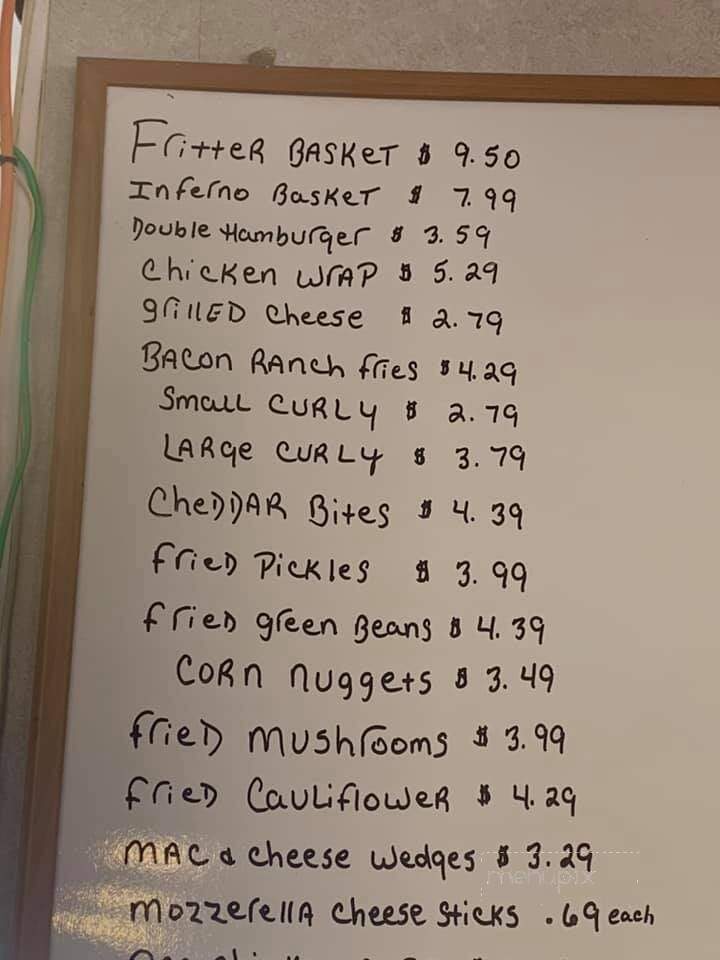 Fritter Basket $ 9.50
Inferno Basket $ 7.99
Double Hamburger $ 3.59
Chicken Wrap $ 5.29
Grilled Cheese $ 2.79
Bacon Ranch Fries $4.29
Small Curly $ 2.79
Large Curly $ 3.79
Cheddar Bites $ 4.39
Fried Pickles $ 3.99
Fried Green Beans $ 4.39
Corn Nuggets $ 3.49
Fried Mushrooms $ 3.99
Fried Cauliflower $ 4.29
Mac & Cheese Wedges $ 3.29
menupix
Mozzerella Cheese Sticks .69 each